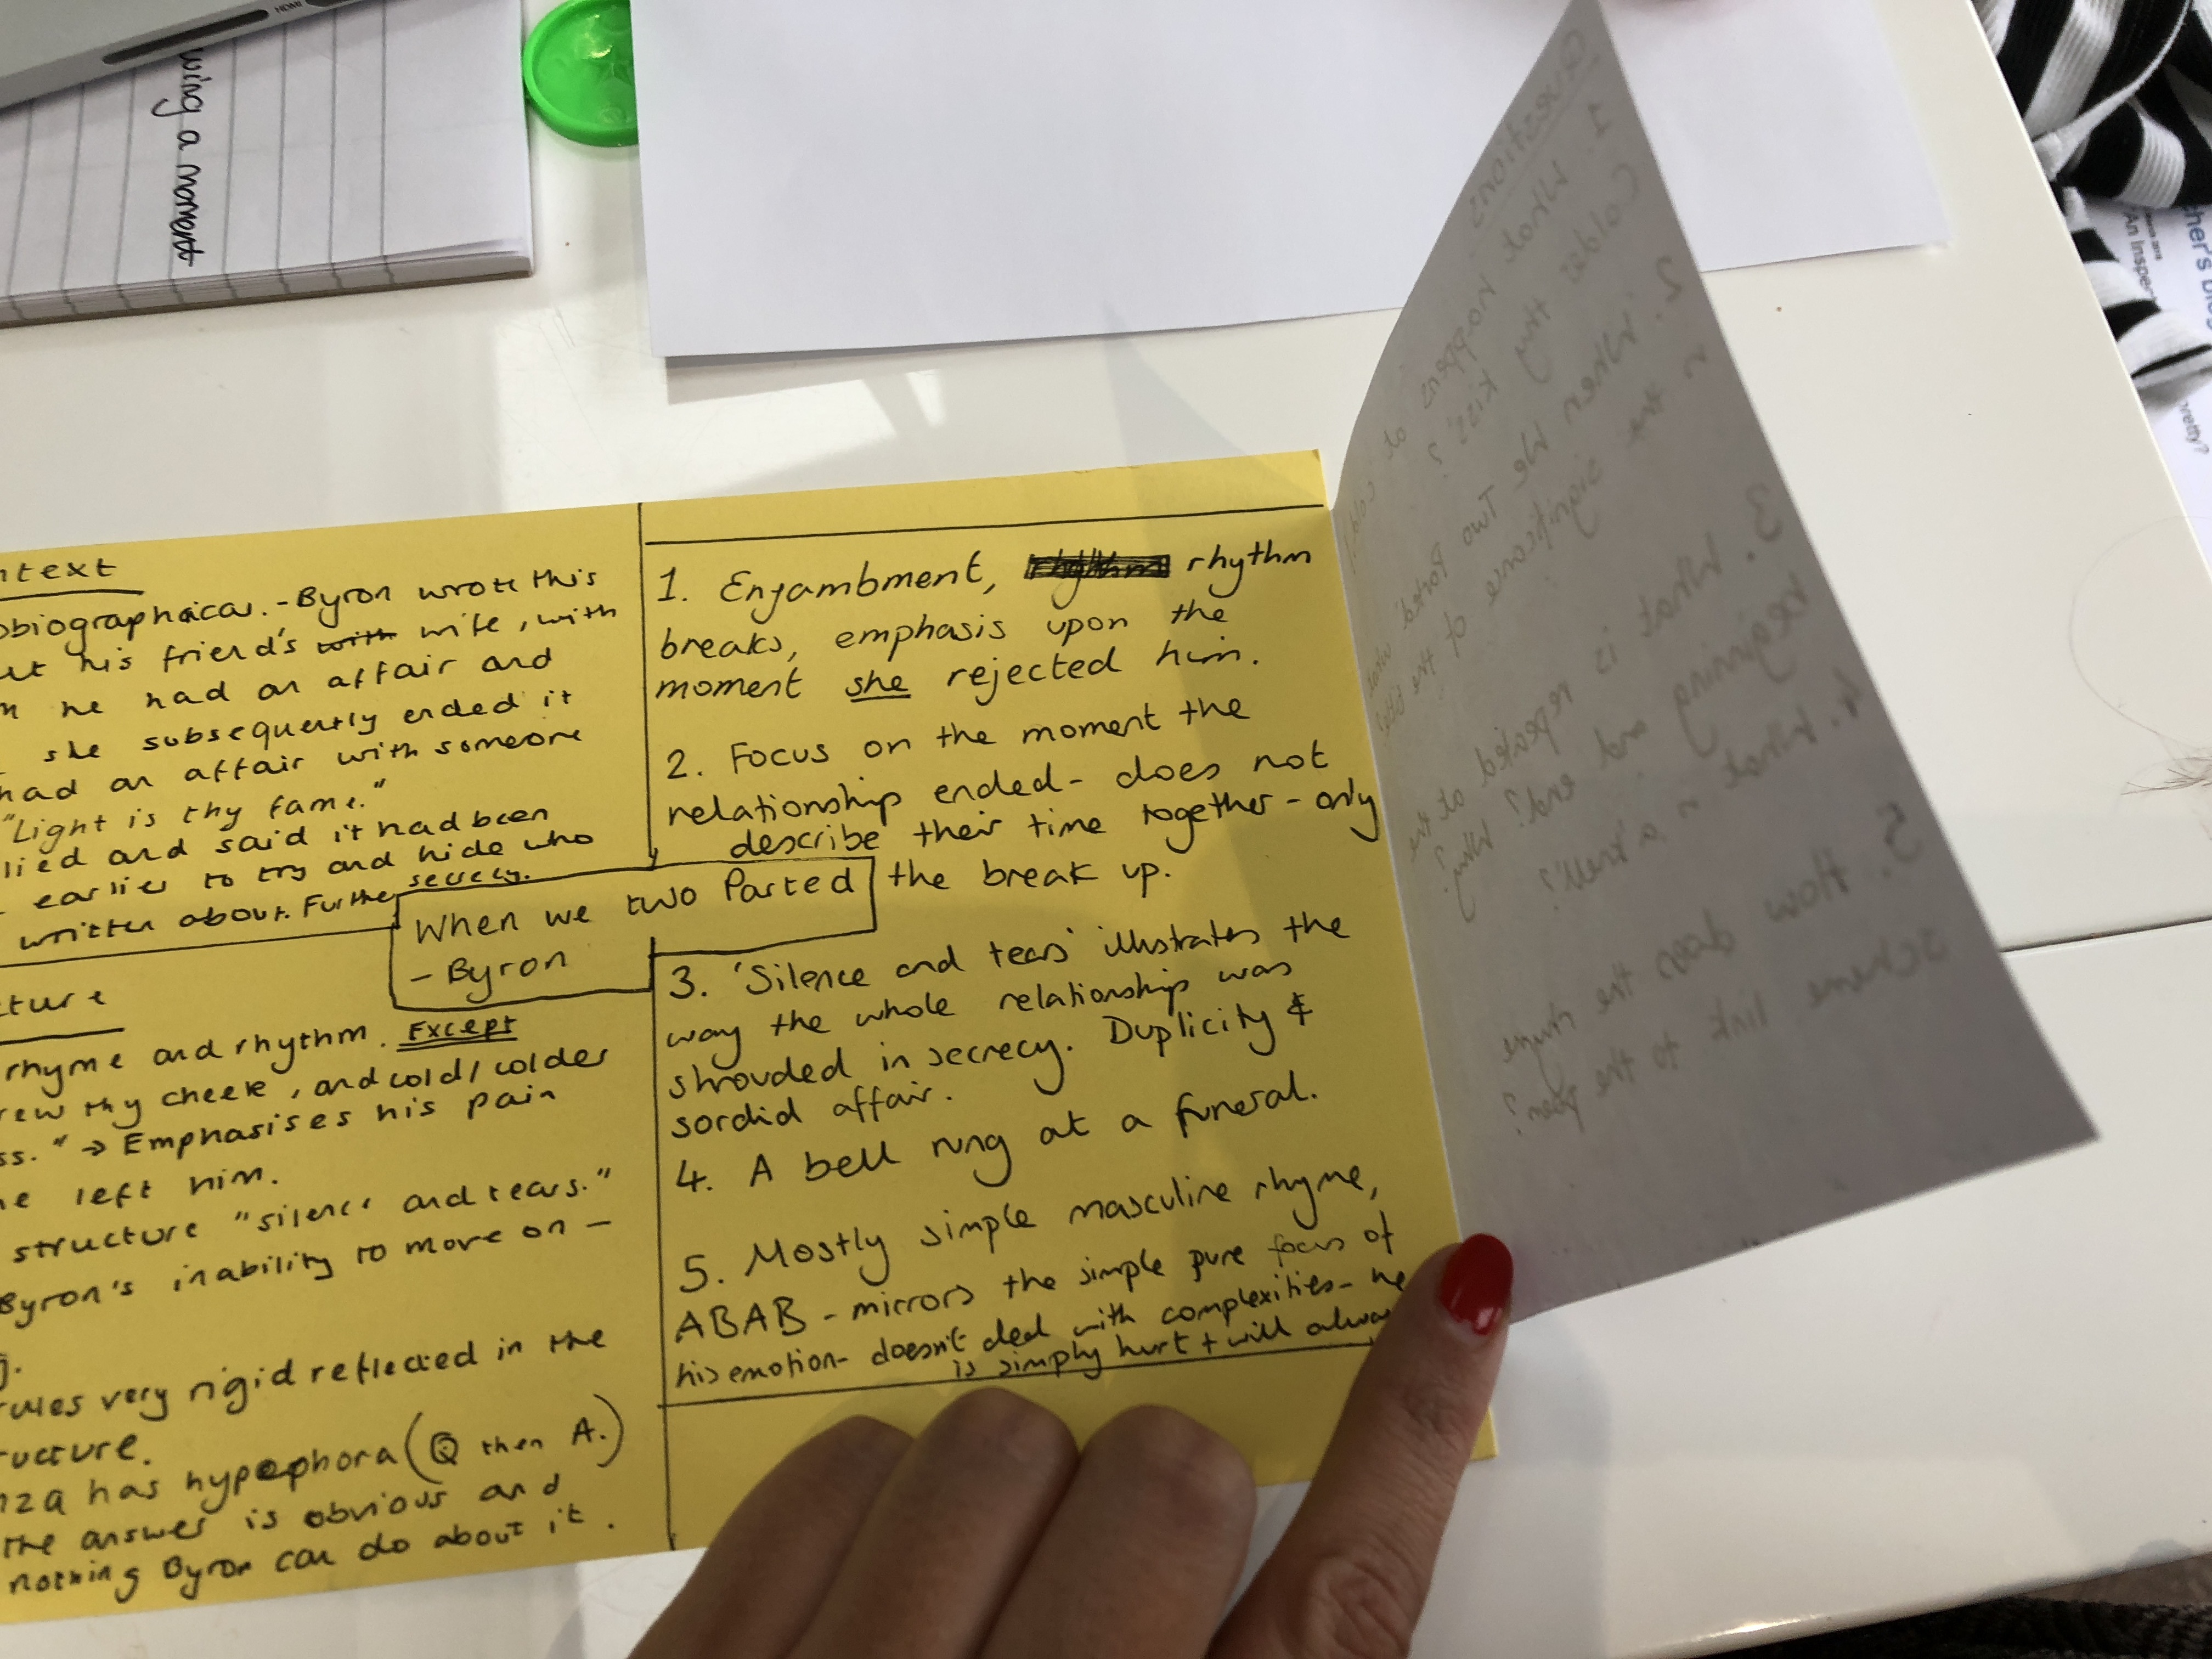 HDMI
wing a moment
ntext
obiographical. - Byron wrote this
ut his friend's with wife, with
m he had an affair and
she subsequently ended it
had an affair with someone
"Light is thy fame."
lied and said it had been
earlier to try and hide who
written about. Further secrecy.
When we two Parted
- Byron
cture
rhyme and rhythm. Except
rew thy cheek, and cold/colder
ss." → Emphasises his pain
he left him.
structure "silence and tears."
Byron's inability to move on -
g.
rules very rigid reflected in the
ructure.
nza has hypophora (Q then A.)
the answer is obvious and
nothing Byron can do about it.
1. Enjambment, rhythm rhythm
breaks, emphasis upon the
moment she rejected him.
2. Focus on the moment the
relationship ended - does not
describe their time together - only
the break up.
3. 'Silence and tears' illustrates the
way the whole relationship was
shrouded in secrecy. Duplicity &
sordid affair.
4. A bell rung at a funeral.
5. Mostly simple masculine rhyme,
ABAB - mirrors the simple pure focus of
his emotion - doesn't deal with complexities - he
is simply hurt + will alwa
Questions
1. What happens at 'cold,
Colder thy kiss'?
2. When We Two Parted, what
the significance of the title?
3. What is repeated at the
beginning and end? Why?
4. What is a knell?
5. How does the rhyme
scheme link to the poem?
cher's
'An Inspec
pretty?